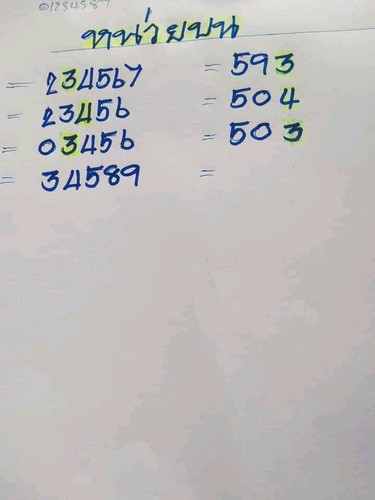 01234589
หน่วยบน
= 234567 = 593
= 23456 = 504
= 03456 = 503
= 34589 =